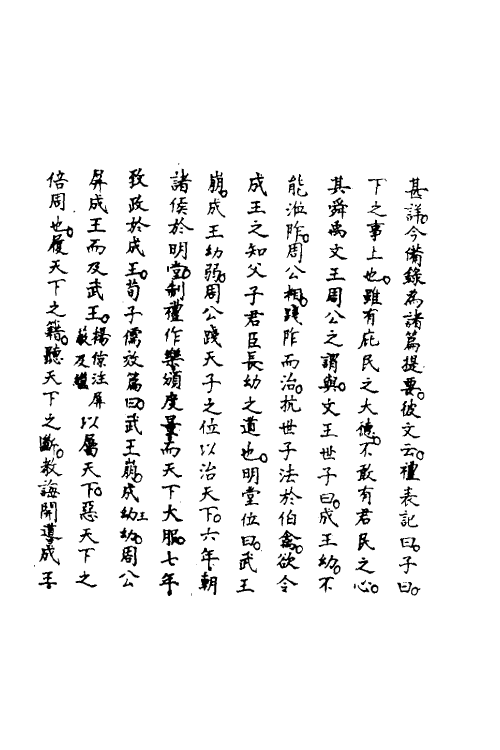 甚詳。今備錄為諸篇提要。彼文云。禮表記曰。子曰。
下之事上也。雖有庇民之大德。不敢有君民之心。
其舜禹文王周公之謂與。文王世子曰。成王幼。不
能涖阼。周公相。踐阼而治。抗世子法於伯禽。欲令
成王之知父子君臣長幼之道也。明堂位曰。武王
崩。成王幼弱。周公踐天子之位以治天下。六年。朝
諸侯於明堂。制禮作樂。頒度量。而天下大服。七年。
致政於成王。荀子儒效篇曰。武王崩。成王幼。周公
屏成王而及武王。楊倞注屏蔽及繼以屬天下。惡天下之
倍周也。履天下之籍。聽天下之斷。教誨開導成王